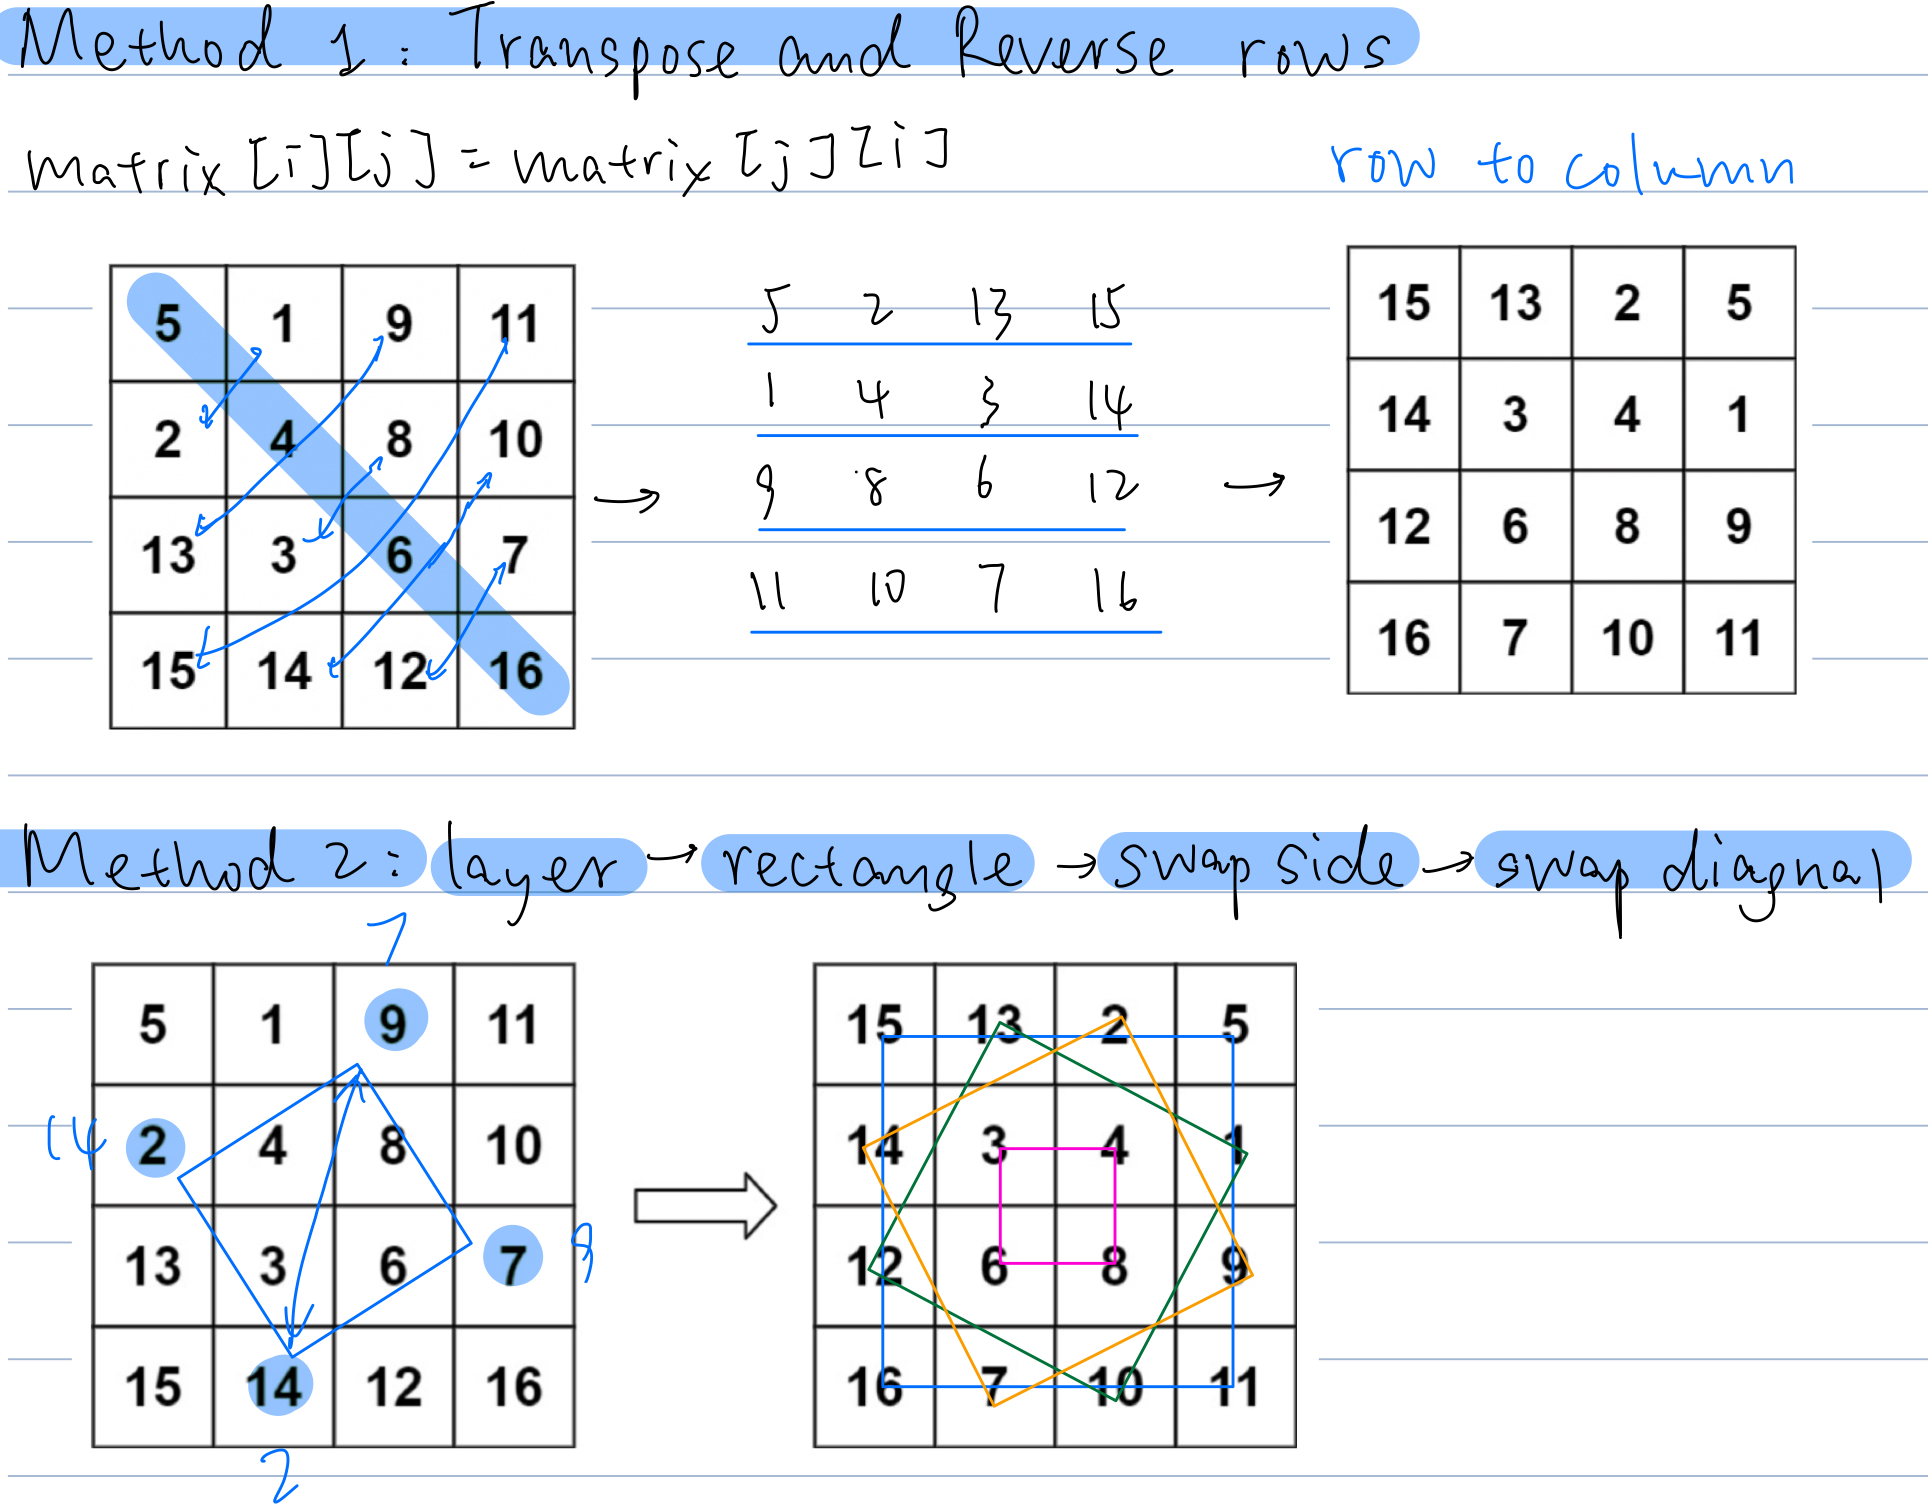 Method 1: Transpose and Reverse rows
matrix[i][j] = matrix[j][i]
row to column
5 1 9 11
2 4 8 10
13 3 6 7
15 14 12 16
→
5 2 13 15
1 4 3 14
9 8 6 12
11 10 7 16
→
15 13 2 5
14 3 4 1
12 6 8 9
16 7 10 11
Method 2: layer → rectangle → swap side → swap diagnal
7
5 1 9 11
14 2 4 8 10
13 3 6 7 9
15 14 12 16
2
15 13 2 5
14 3 4 1
12 6 8 9
16 7 10 11